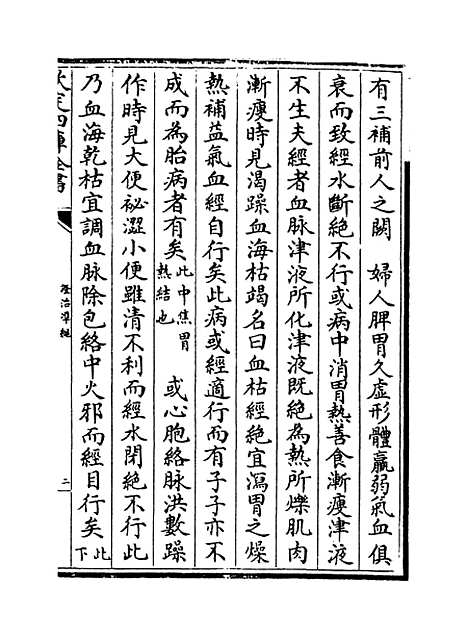 有三補前人之闕　婦人脾胃久虛形體羸弱氣血俱
衰而致經水斷絕不行或病中消胃熱善食漸瘦津液
不生夫經者血脉津液所化津液既絕為熱所爍肌肉
漸瘦時見渴躁血海枯竭名曰血枯經絕宜瀉胃之燥
熱補益氣血經自行矣此病或經適行而有子子亦不
成而為胎病者有矣此中焦胃熱結也　或心胞絡脉洪數躁
作時見大便祕澀小便雖清不利而經水閉絕不行此
乃血海乾枯宜調血脉除包絡中火邪而經自行矣此下
欽定四庫全書
證治準繩
二